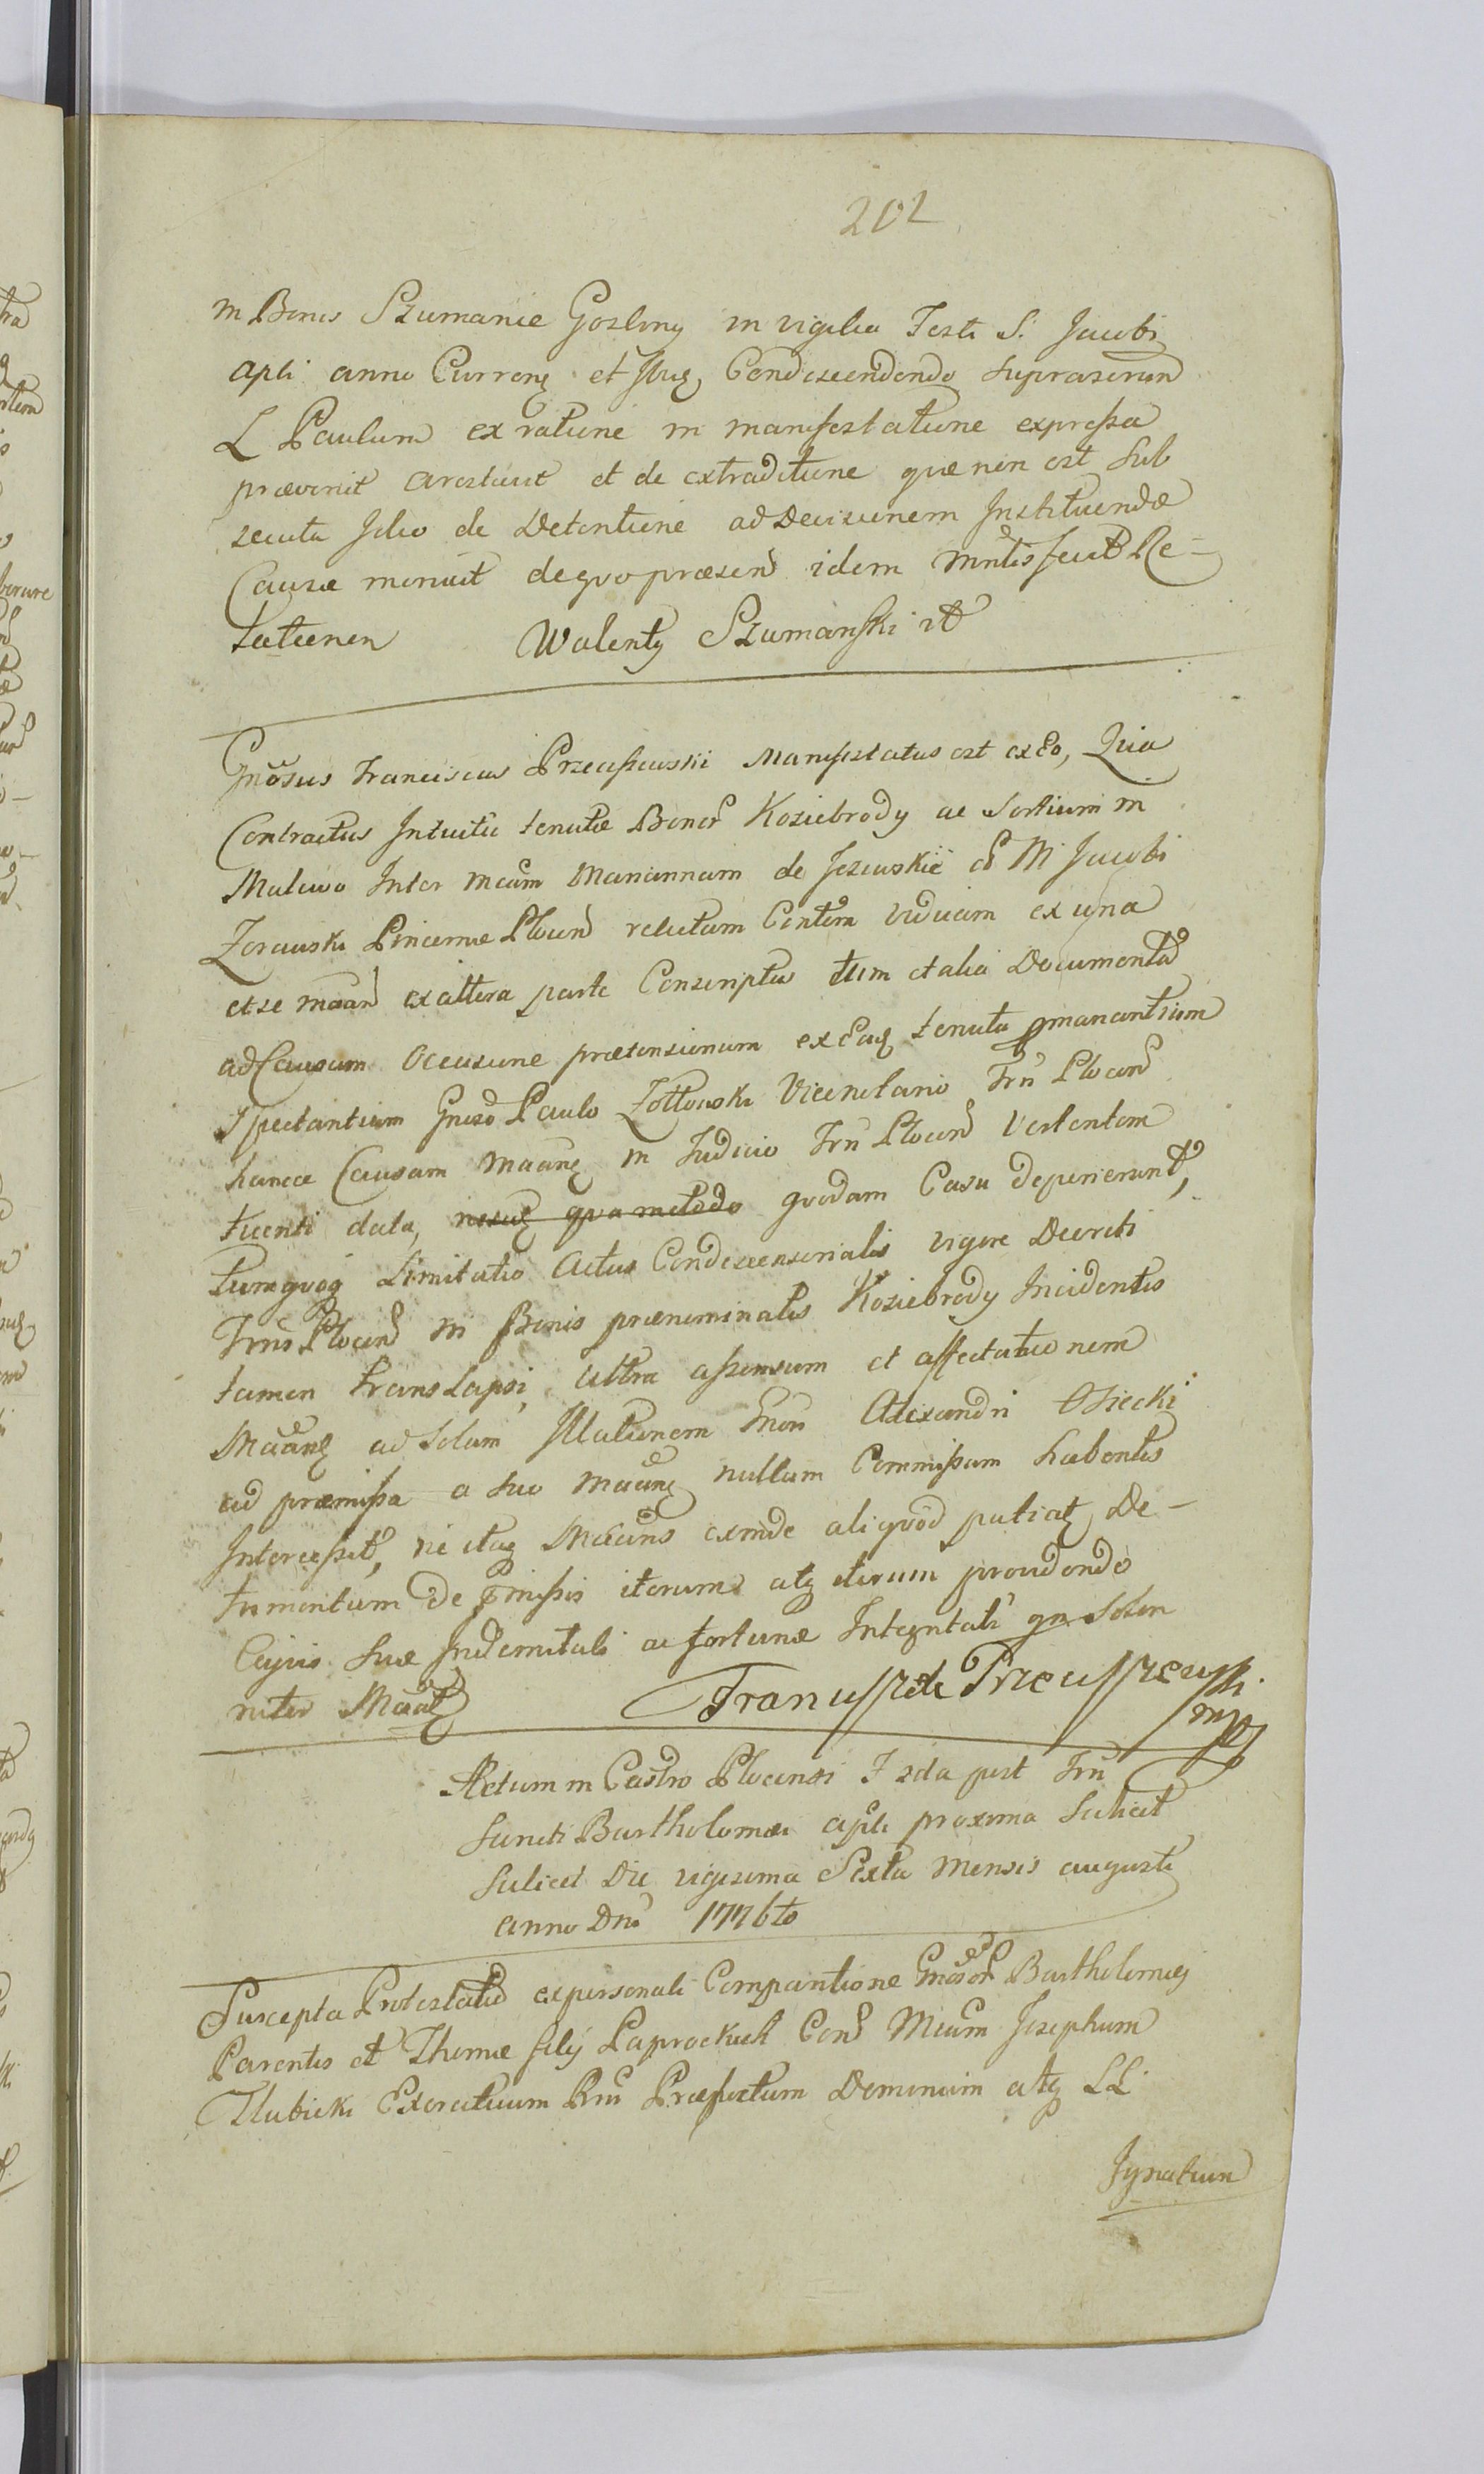 202
in Bonis Szumanie Gozliny in vigilia Festi S. Jacobi
Apli anno Curren et Condescendendo supraseren
L Paulum ex ratione in manifestatione expressa
prævenit arestavit et de extraditione quæ non est sub
secuta Ideo de Detentione ad Decisionem Instituendæ
Causæ monuit de quo præsens idem Mntlis fecit Re-
lationem Walenty Szumanski
Gnosus Franciscus Przeciszewski Manifestatus est ex Eo, Quia
Contractus Intuitu tenutæ Bonor Koziebrody ac Sortium in
Malewo Inter Mcam Mariannam de Jezewskie M Jacobi
Zorawski Pincernæ Plocen relictam Contem viduam ex una
et se maan ex altera parte Conscriptus tum et alia Documenta
ad Causam Occasione prætensionum ex Eaq tenuta manantium
spectantium Gneso Paulo Żółtowski Vicenotario Trri Plocen
hancce Causam Maang in Judicio Trri Plocen Vertentem
tuenti data, quo metodo quodam Casu deperierunt,
tumquoq Limitatio Actus Condescensorialis vigore Decreti
Trris Plocen in Bonis prænominatis Koziebrody Incidentis
tamen translapsi, ultra assensum et affectationem
Maang ad Solam Illationem Gnosi Alexandri Osiecki
ad præmissa a suo Maang nullum Commissum habentis
Intercessit, ne itaq Maans exinde aliquod patiatq De-
trimentum de pmissis iterum atq iterum providendo
Cujus suæ Indemnitati ac fortunæ Integritati qm Solen
niter Maatq Franciszek Przeciszewski
mp
Actum in Castro Plocensi F 2da post Frii
Sancti Bartholomæi apli proxima Scilicet
Scilicet Die vigesima Sexta Mensis augusti
anno Dni 1776to
Suscepta Protestatio ex personali Comparitione Gnosor Bartholomæj
Parentis et Thomæ filij Paprockich Con Mcum Josephum
Tlubicki Exercituum Præfectum Dominum atq LL
Ignatium